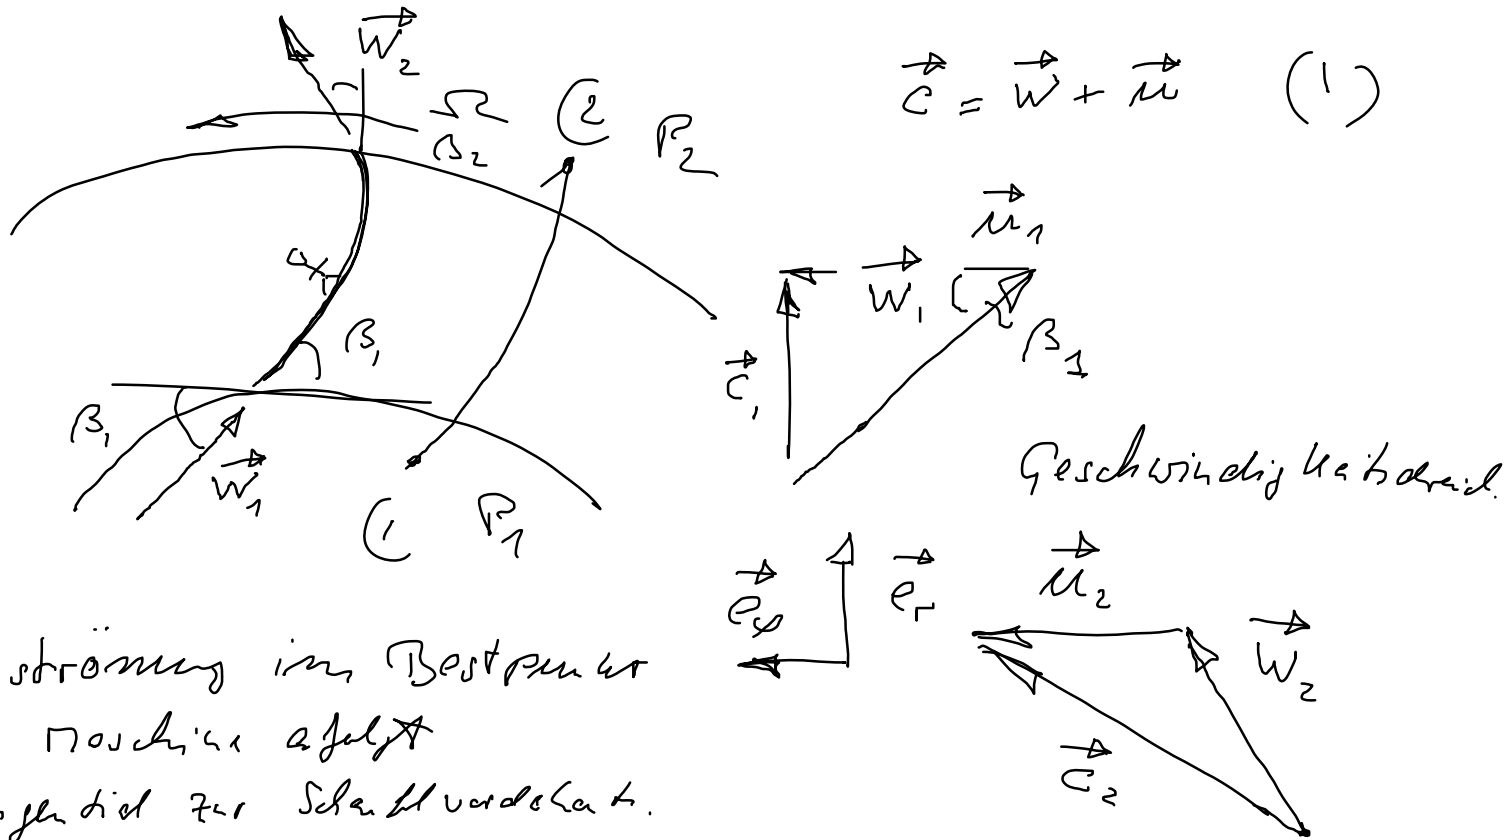 w⃗₂
Ω
(2
β₂
P₂
c⃗ = w⃗ + u⃗ (1)
u⃗₁
w⃗₁
β₁
c⃗₁
β₁
β₁
w⃗₁
(1
P₁
Geschwindigkeitsdreieck.
e⃗φ
e⃗r
u⃗₂
w⃗₂
c⃗₂
strömung im Bestpunkt
Maschine erfolgt
gential zur Schaufelvorderkante.